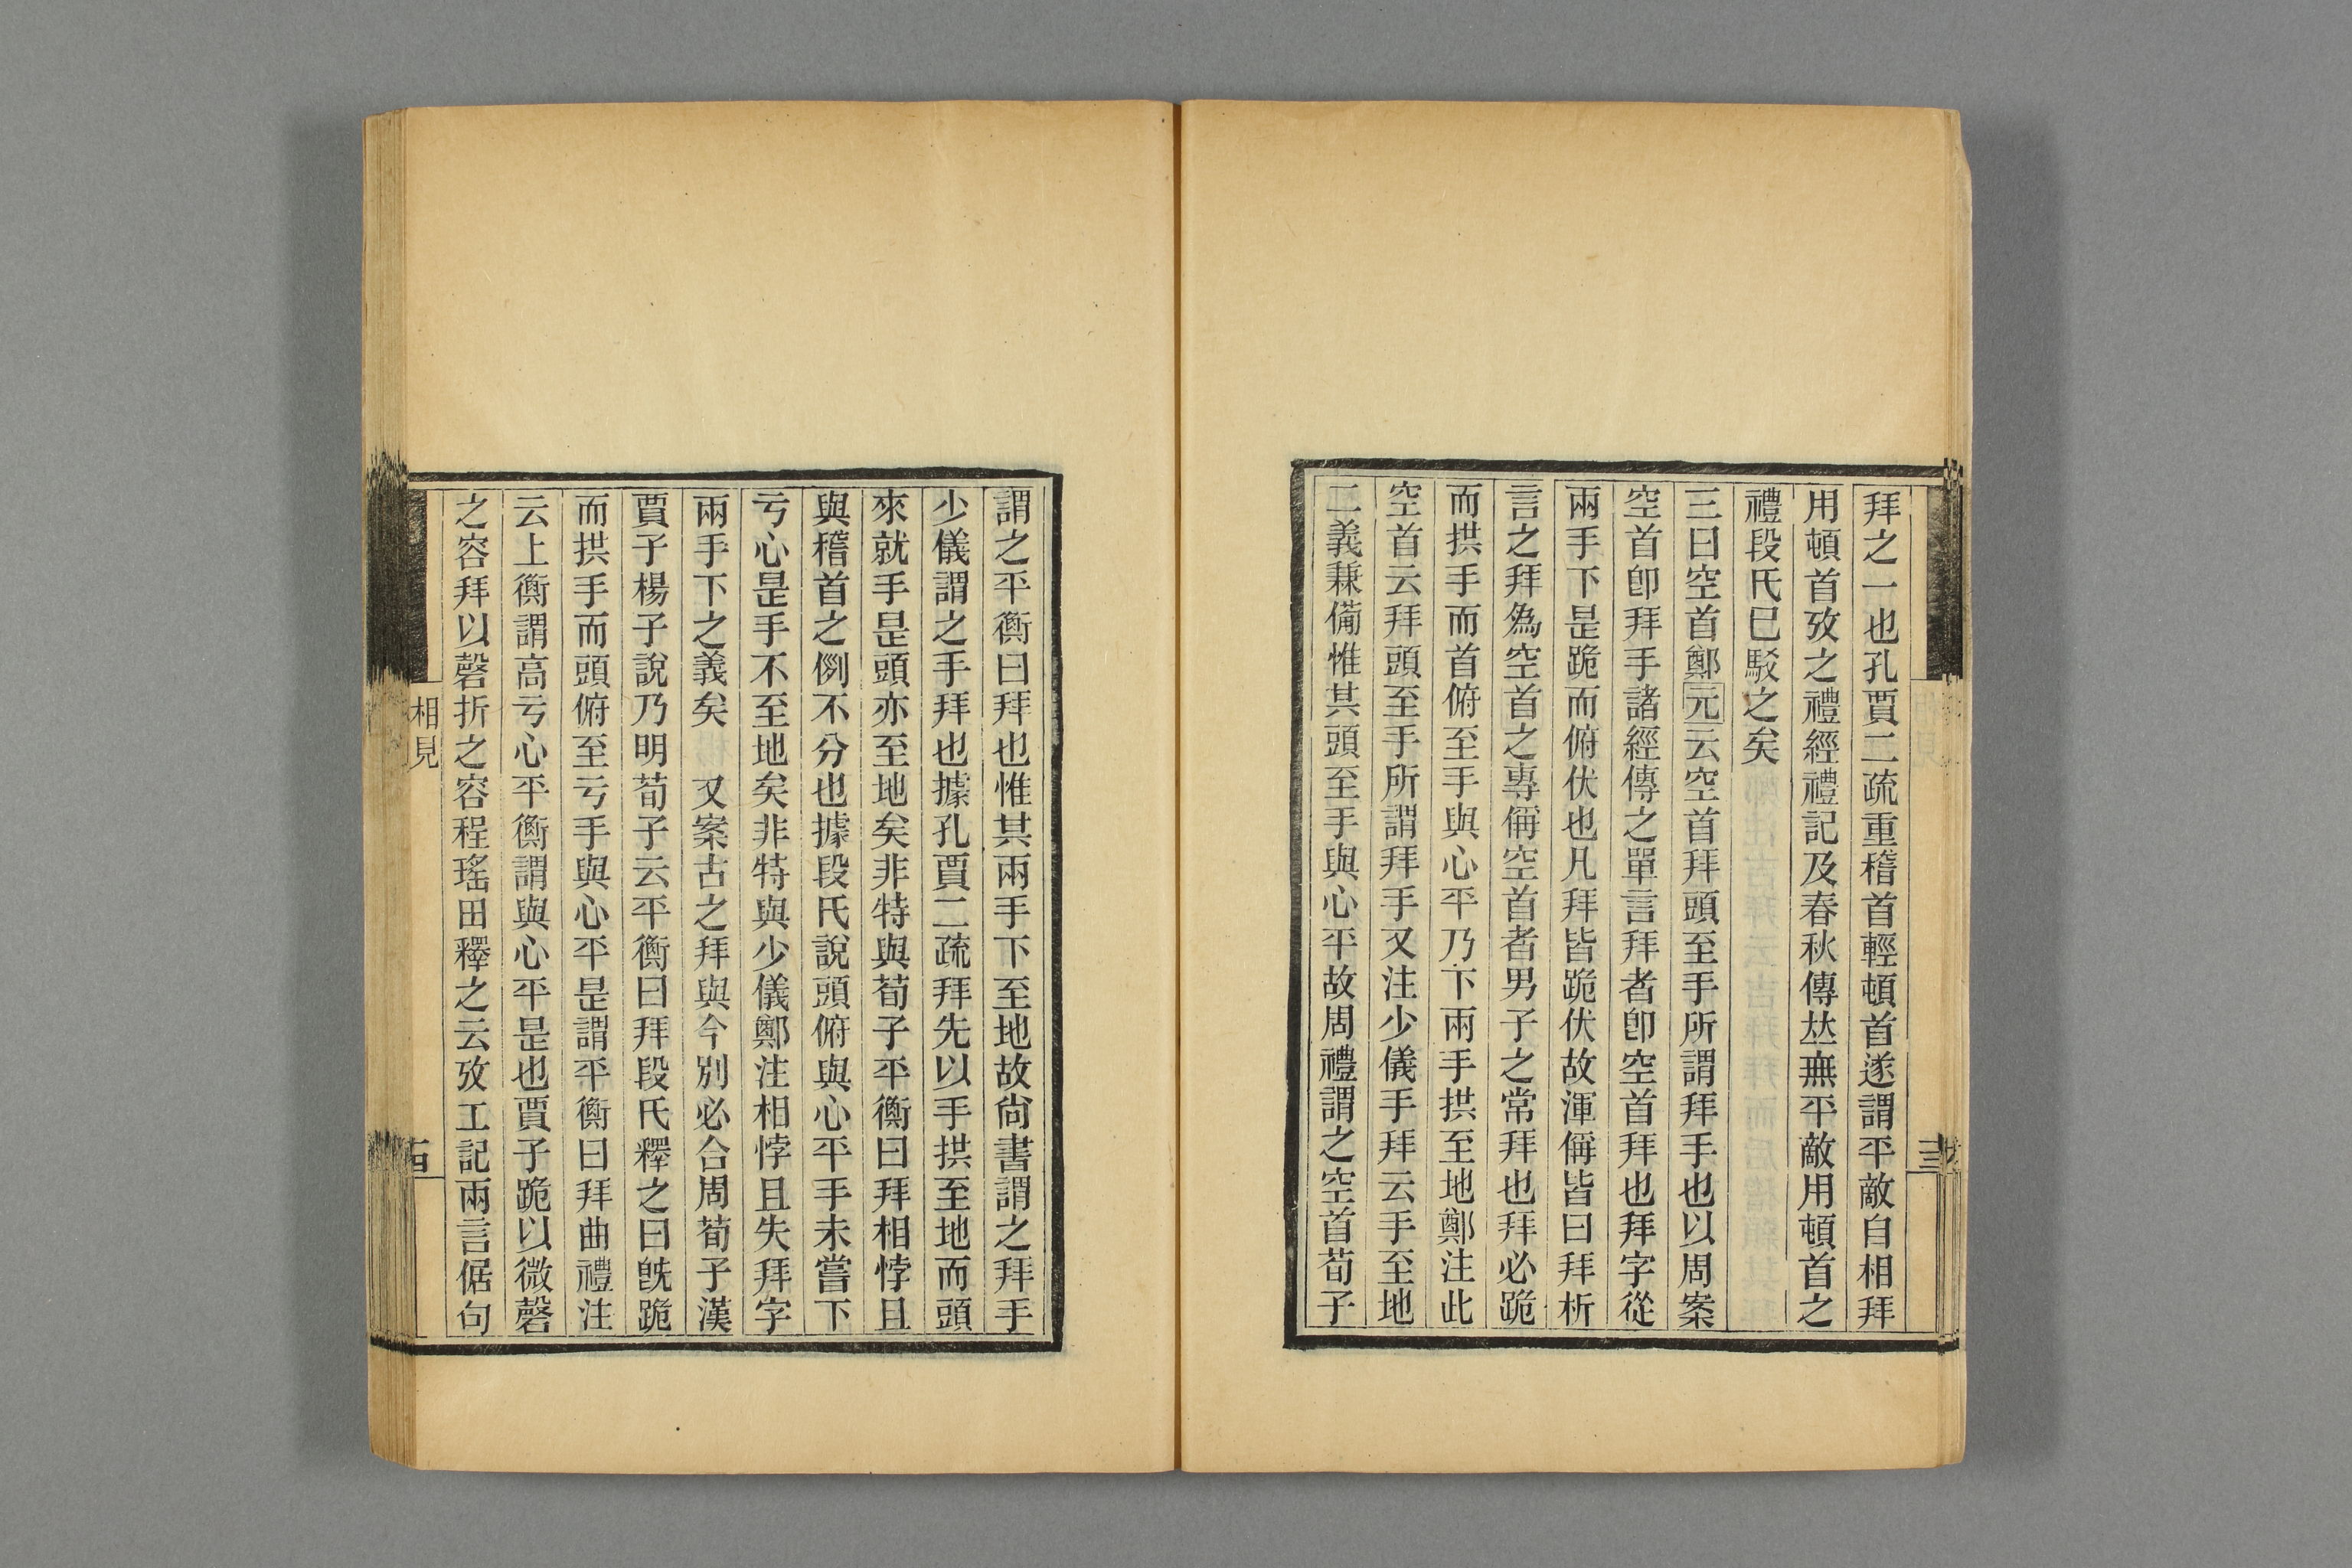 拜之一也孔賈二疏重稽首輕頓首遂謂平敵自相拜
用頓首攷之禮經禮記及春秋傳竝無平敵用頓首之
禮段氏巳駁之矣
三曰空首鄭元云空首拜頭至手所謂拜手也以周案
空首卽拜手諸經傳之單言拜者卽空首拜也拜字從
兩手下是跪而俯伏也凡拜皆跪伏故渾偁皆曰拜析
言之拜爲空首之專偁空首者男子之常拜也拜必跪
而拱手而首俯至手與心平乃下兩手拱至地鄭注此
空首云拜頭至手所謂拜手又注少儀手拜云手至地
二義兼備惟其頭至手與心平故周禮謂之空首荀子
謂之平衡曰拜也惟其兩手下至地故尙書謂之拜手
少儀謂之手拜也據孔賈二疏拜先以手拱至地而頭
來就手是頭亦至地矣非特與荀子平衡曰拜相悖且
與稽首之例不分也據段氏說頭俯與心平手未嘗下
亏心是手不至地矣非特與少儀鄭注相悖且失拜字
兩手下之義矣　又案古之拜與今別必合周荀子漢
賈子楊子說乃明荀子云平衡曰拜段氏釋之曰旣跪
而拱手而頭俯至亏手與心平是謂平衡曰拜曲禮注
云上衡謂高亏心平衡謂與心平是也賈子跪以微磬
之容拜以磬折之容程瑤田釋之云攷工記兩言倨句
相見